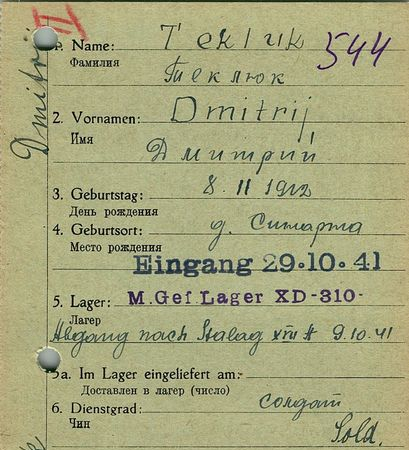 II
544
Dmitrij
1. Name: Tekljuk
Фамилия Теклюк
2. Vornamen: Dmitrij
Имя Дмитрий
3. Geburtstag: 8. 11 1912
День рождения
4. Geburtsort: д.
Место рождения
Eingang 29.10.41
5. Lager: M. Gef. Lager XD-310-
Лагерь
Abgang nach Stalag 9.10.41
5a. Im Lager eingeliefert am:
Доставлен в лагерь (число)
6. Dienstgrad: солдат
Чин Sold.